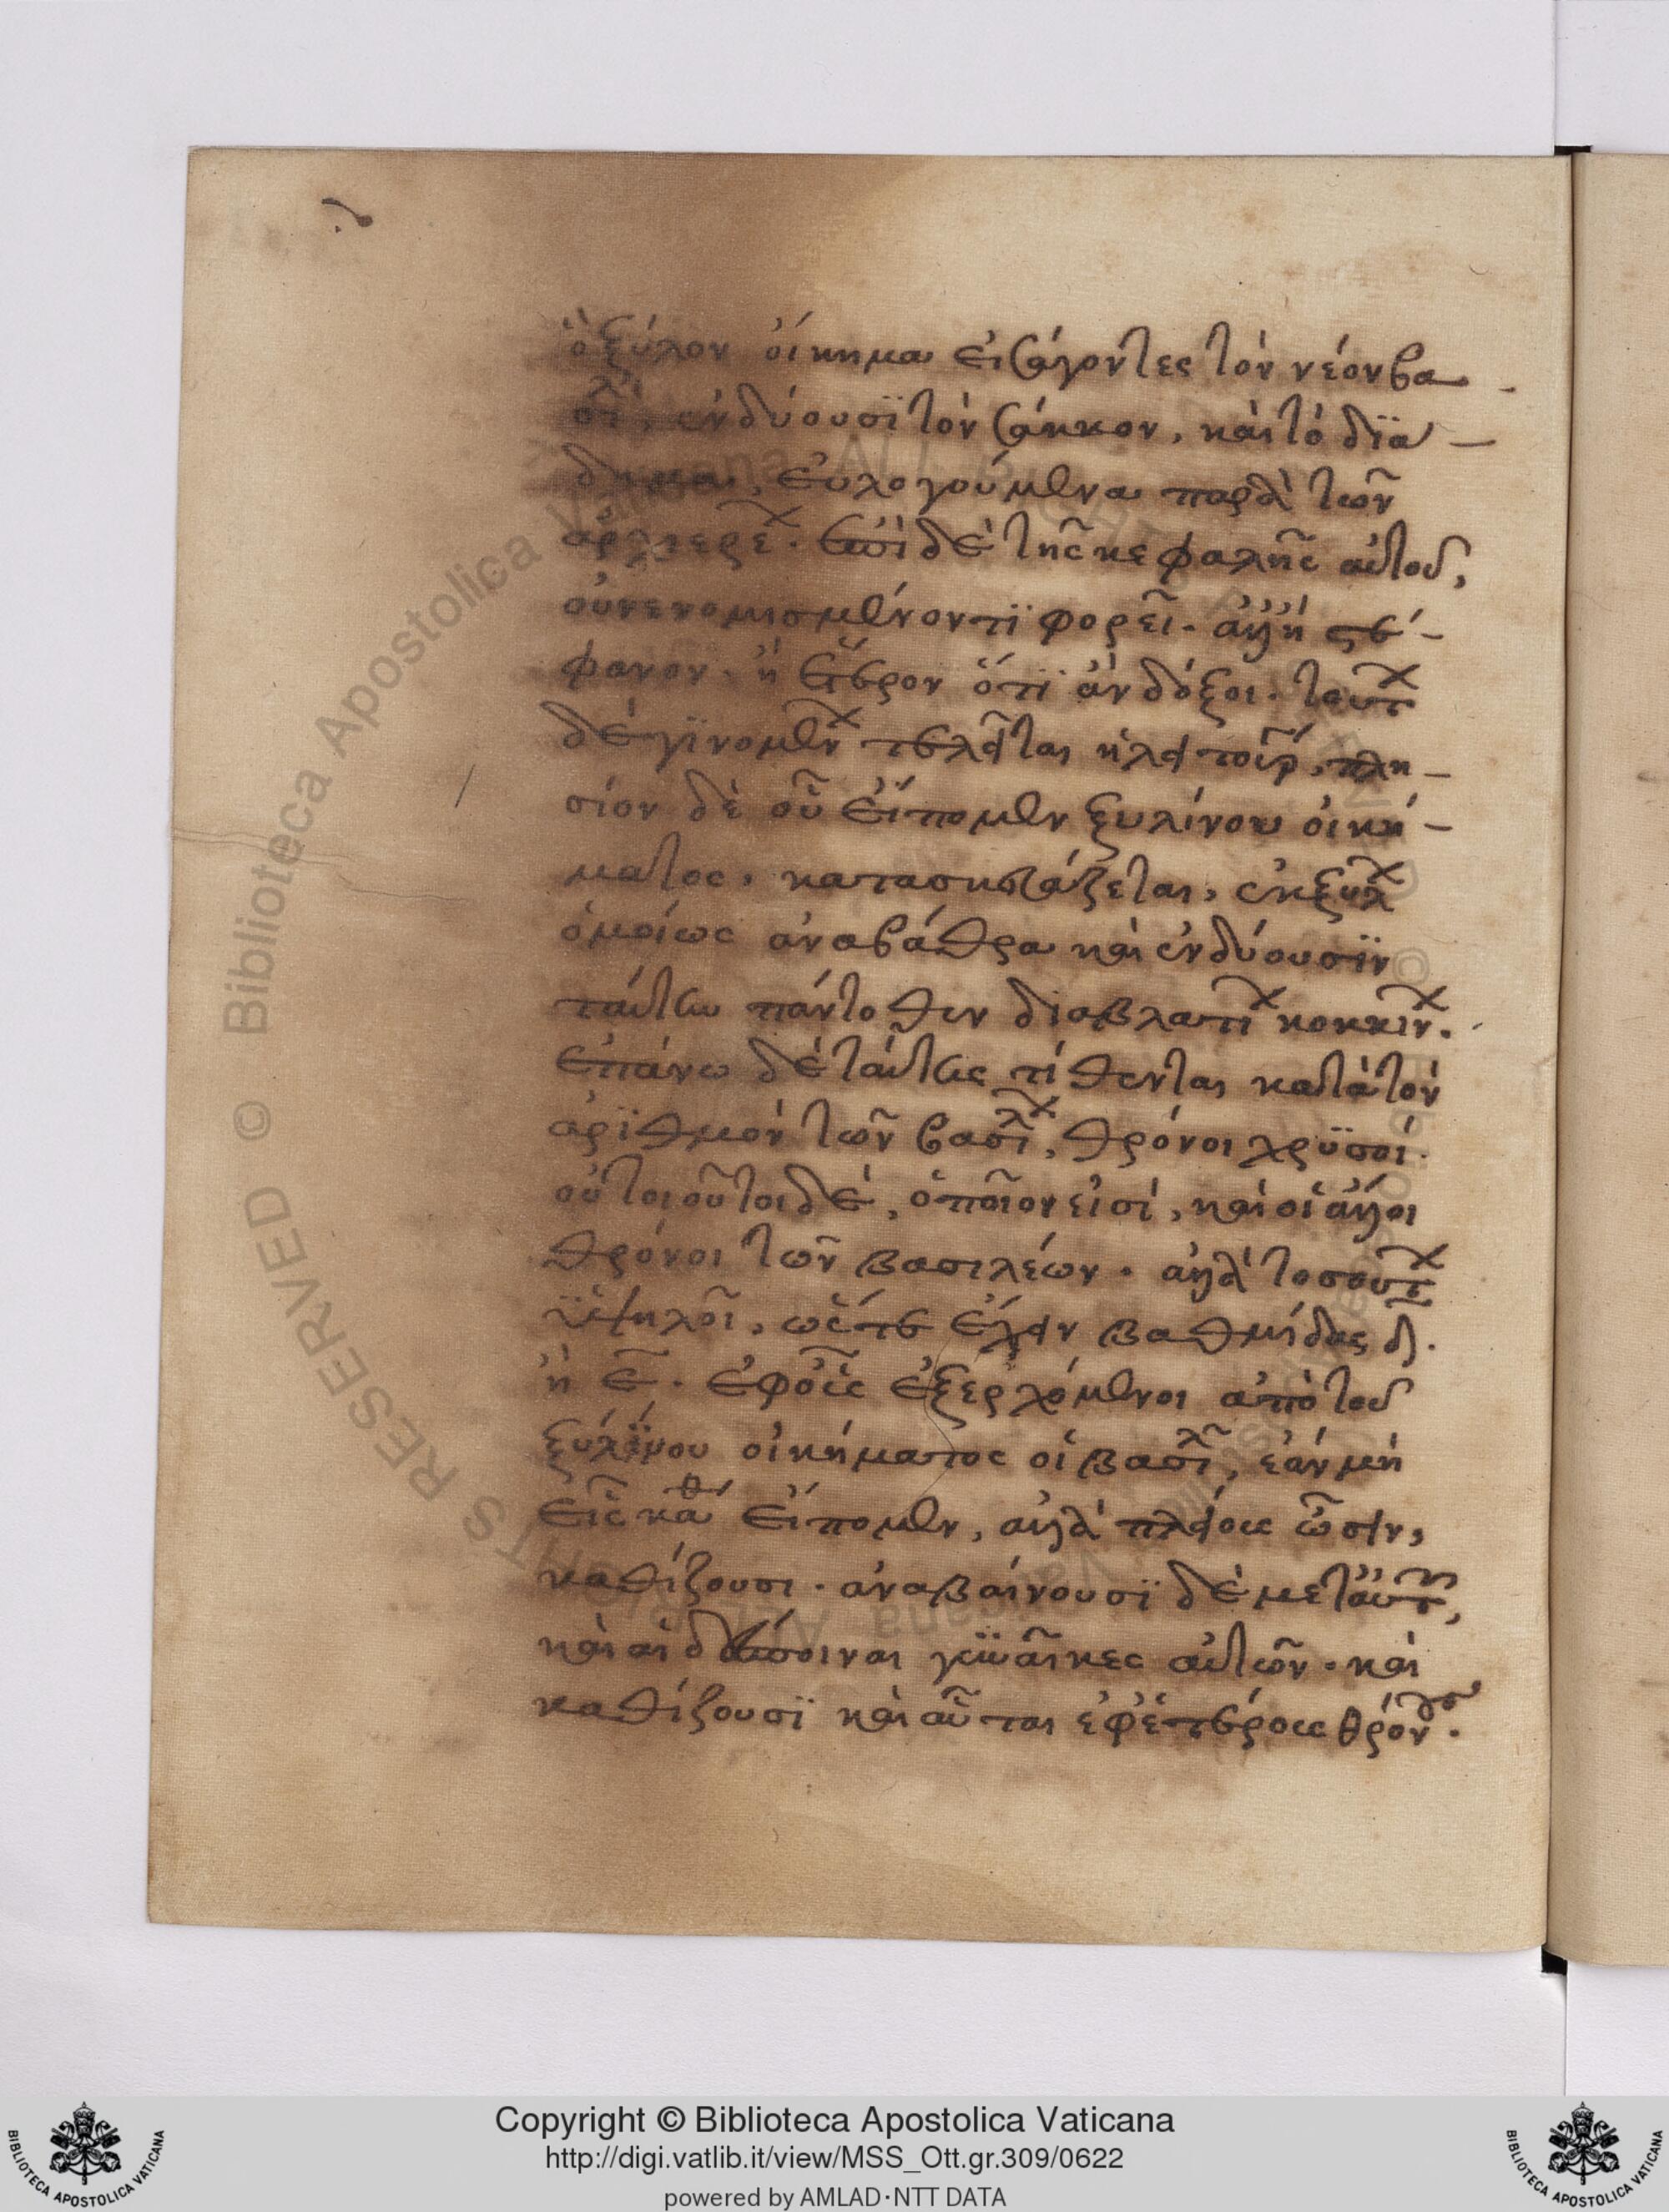 ὀξύλον οἴκημα εἰσάγοντες τὸν νέον βα
σι, ἐνδύουσϊ τὸν σάκκον, καὶ τὸ δϊά –
δημα, εὐλογούμενα παρὰ τῶν
ἀρχιερε. ἐπὶ δὲ τῆς κεφαλῆς αὐτοῦ,
οὐ νενομισμένον τϊ φορεῖ. ἀλλ' ἢ στέ –
φανον, ἢ ἕτερον ὅτϊ ἂν δόξοι. τουτ
δὲ γϊνομεν τελεῖται ἡ λειτουρ, πλη –
σίον δὲ οὗ εἴπομεν ξυλίνου οἰκή –
ματος, κατασκευάζεται, ἐκ ξυλ
ὁμοίως ἀναβάθρα καὶ ἐνδύουσϊν
ταύτην πάντοθεν διαβλατϊ κοκκιν.
ἐπάνω δὲ ταύτης τίθενται κατὰ τὸν
ἀρϊθμὸν τῶν βασι, θρόνοι χρϋσοί.
οὐ τοιοῦτοι δὲ, ὁποῖον εἰσὶ, καὶ οἱ ἄλλοι
θρόνοι τῶν βασιλέων. ἀλλὰ τοσουτ
ϋψηλοῖ, ὥστε ἔχειν βαθμίδας δ.
ἢ ε. ἐφ' οἷς ἐξερχόμενοι ἀπὸ τοῦ
ξυλίνου οἰκήματος οἱ βασιλ, ἐὰν μὴ
εἷς καθ εἴπομεν, ἀλλὰ πλείους ὦσιν,
καθίζουσι. ἀναβαίνουσϊ δὲ μετ' αυτ,
καὶ αἱ δέσποιναι γυναῖκες αὐτῶν. καὶ
καθίζουσϊ καὶ αὗται ἐφ' ἑτέροις θρόν.
Copyright © Biblioteca Apostolica Vaticana
http://digi.vatlib.it/view/MSS_Ott.gr.309/0622
powered by AMLAD·NTT DATA